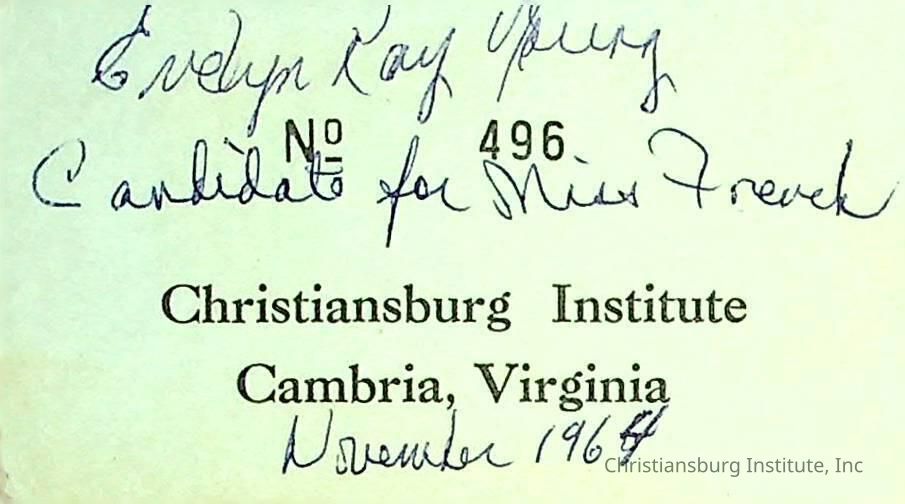 Evelyn Kay Young
No 496
Candidate for Miss French
Christiansburg Institute
Cambria, Virginia
November 1964
Christiansburg Institute, Inc